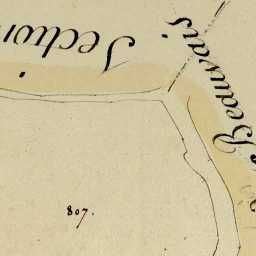 Section
Beauvais
807.